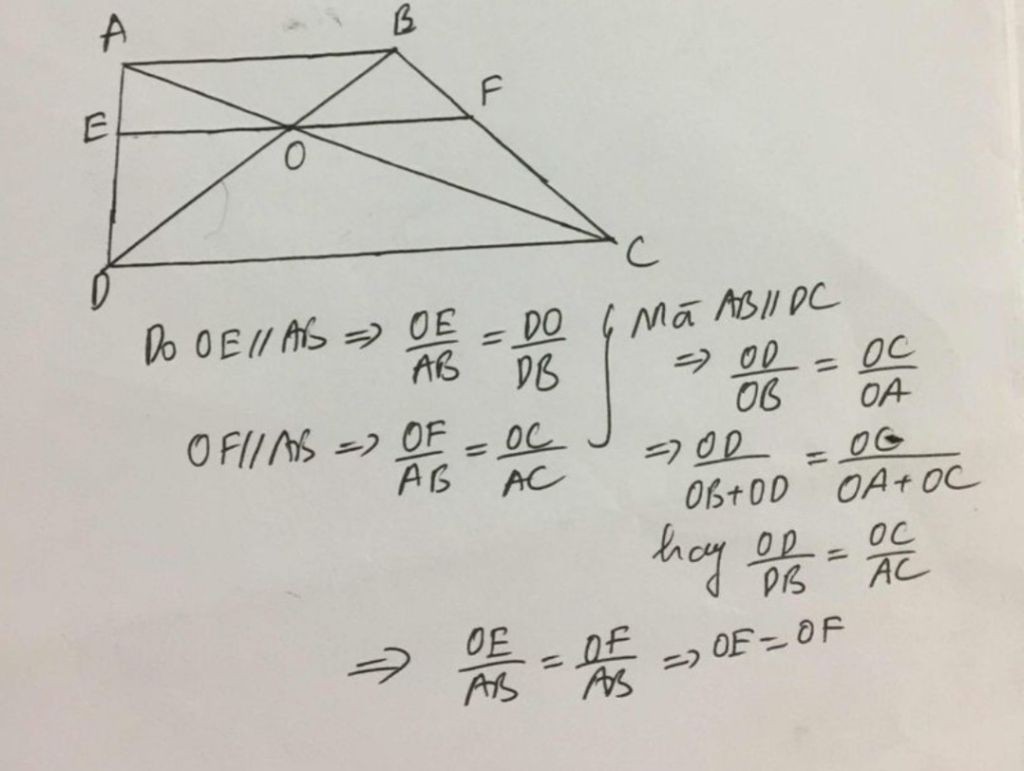 A
B
E
F
O
D
C
Do OE // AB => OE/AB = DO/DB
OF // AB => OF/AB = OC/AC
Mà AB // DC
=> OD/OB = OC/OA
=> OD/(OB+OD) = OC/(OA+OC)
hay OD/DB = OC/AC
=> OE/AB = OF/AB => OE = OF